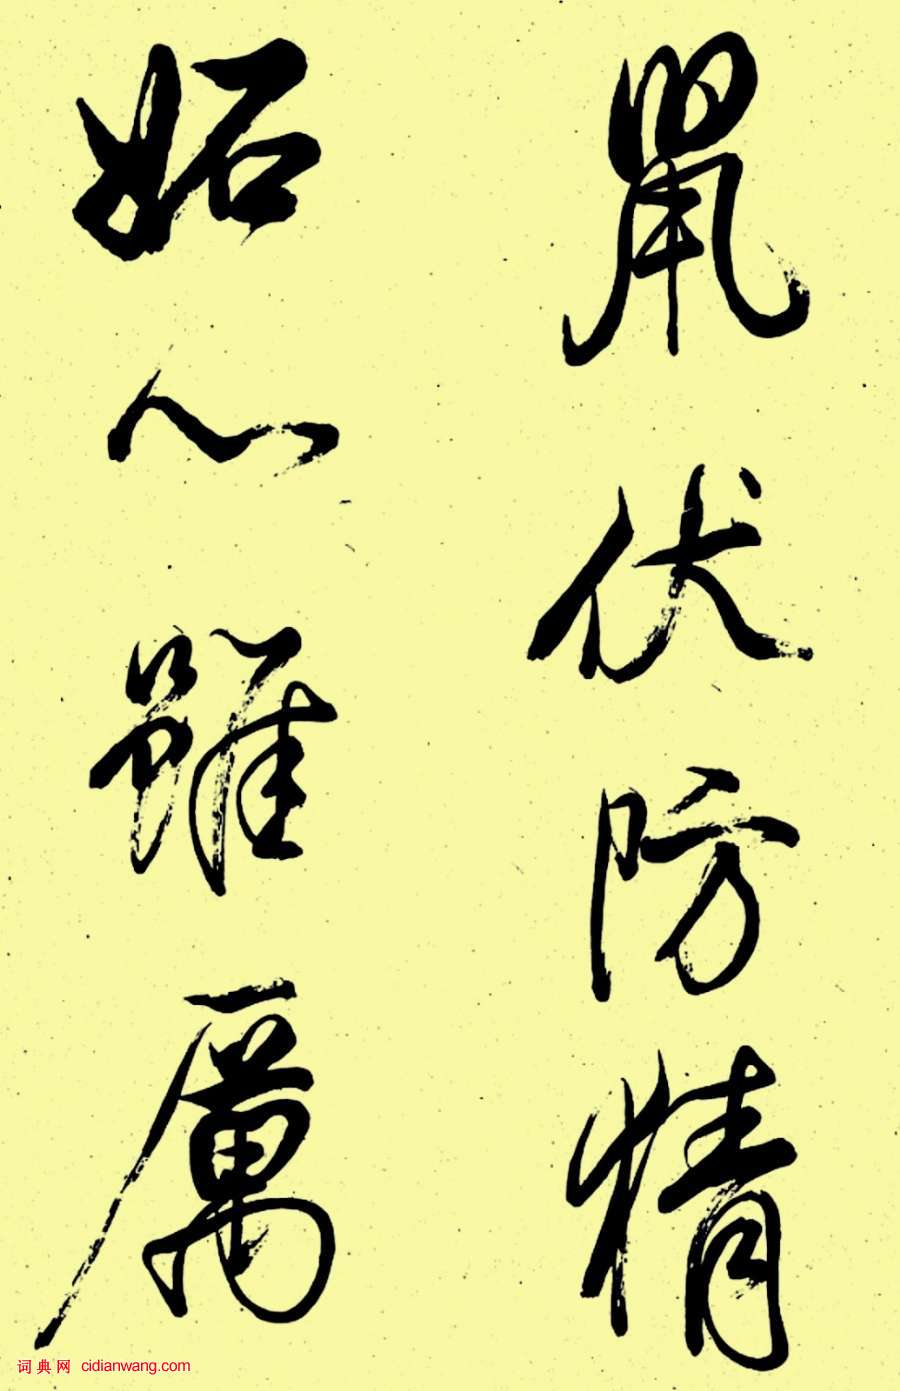 鼠伏防情
妬心雖厲
词典网 cidianwang.com